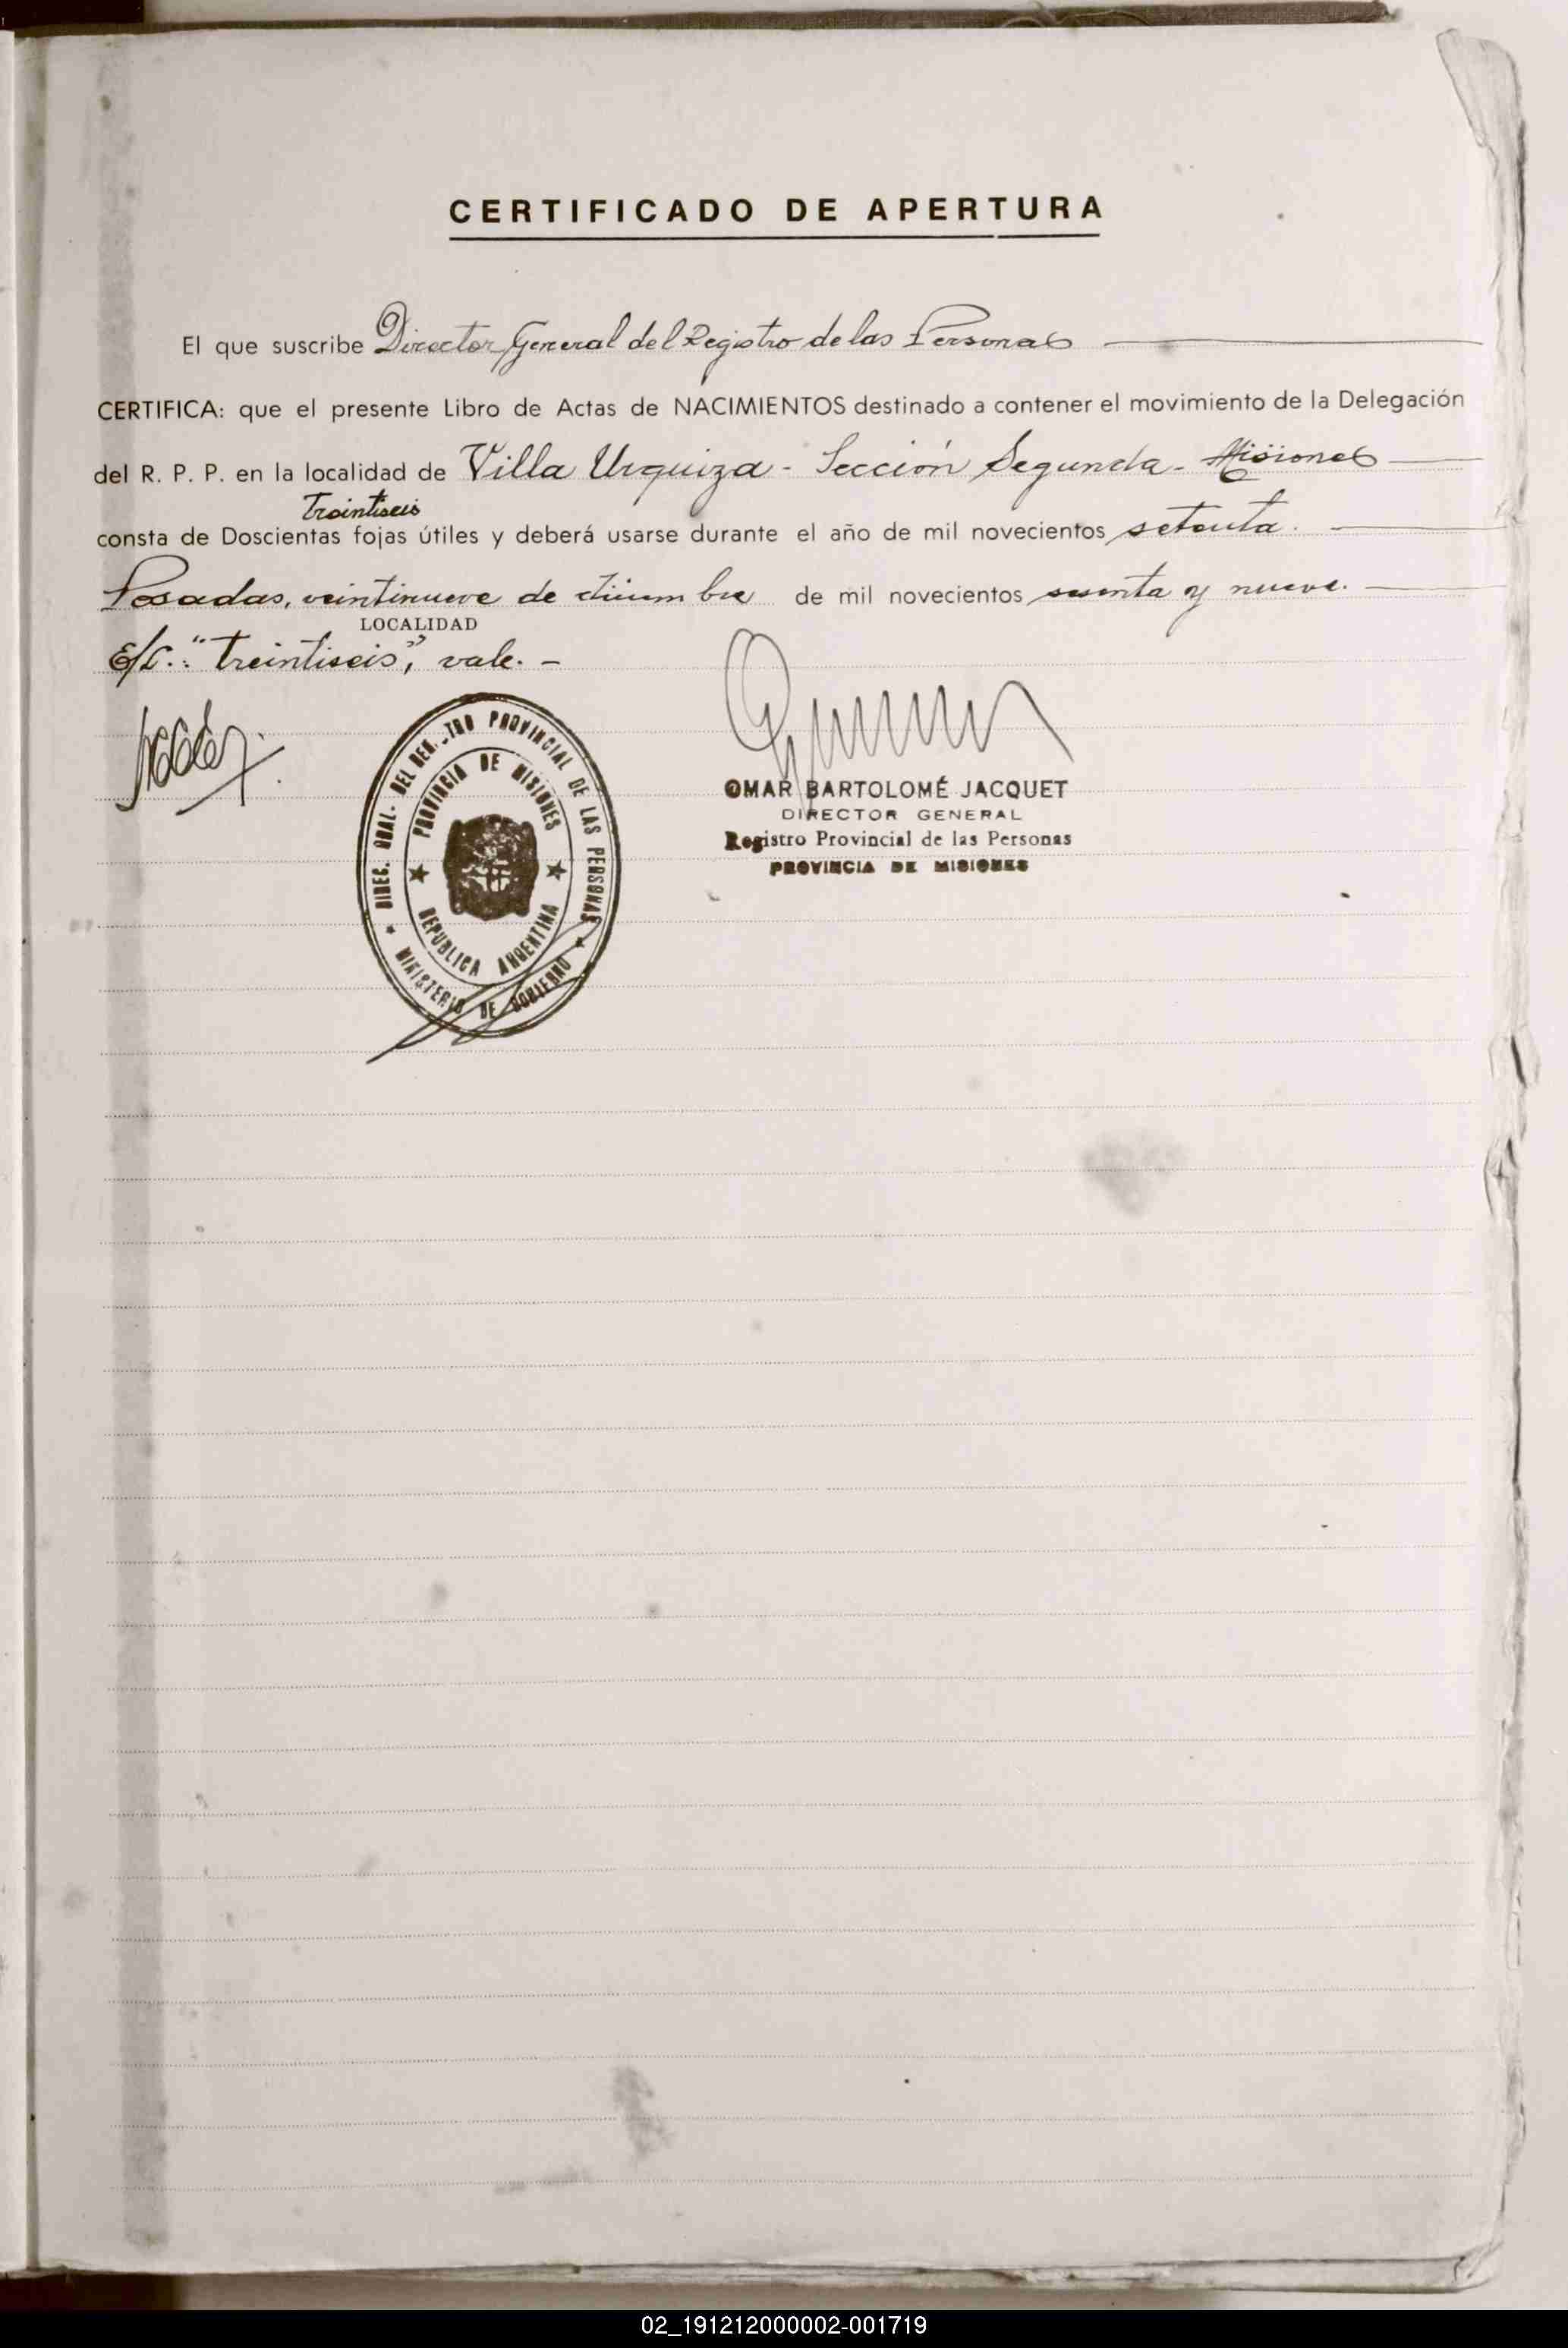 CERTIFICADO DE APERTURA
El que suscribe Director General del Registro de las Personas
CERTIFICA: que el presente Libro de Actas de NACIMIENTOS destinado a contener el movimiento de la Delegación
del R. P. P. en la localidad de Villa Urquiza - Sección Segunda - Misiones
Treintiseis
consta de Doscientas fojas útiles y deberá usarse durante el año de mil novecientos setenta.
Posadas, veintinueve de diciembre de mil novecientos sesenta y nueve.
LOCALIDAD
E/L.: "treintiseis", vale. -
DIREC. GRAL. DEL REG. TRO PROVINCIAL DE LAS PERSONAS
PROVINCIA DE MISIONES
REPUBLICA ARGENTINA
MINISTERIO DE GOBIERNO
OMAR BARTOLOMÉ JACQUET
DIRECTOR GENERAL
Registro Provincial de las Personas
PROVINCIA DE MISIONES
02_191212000002-001719